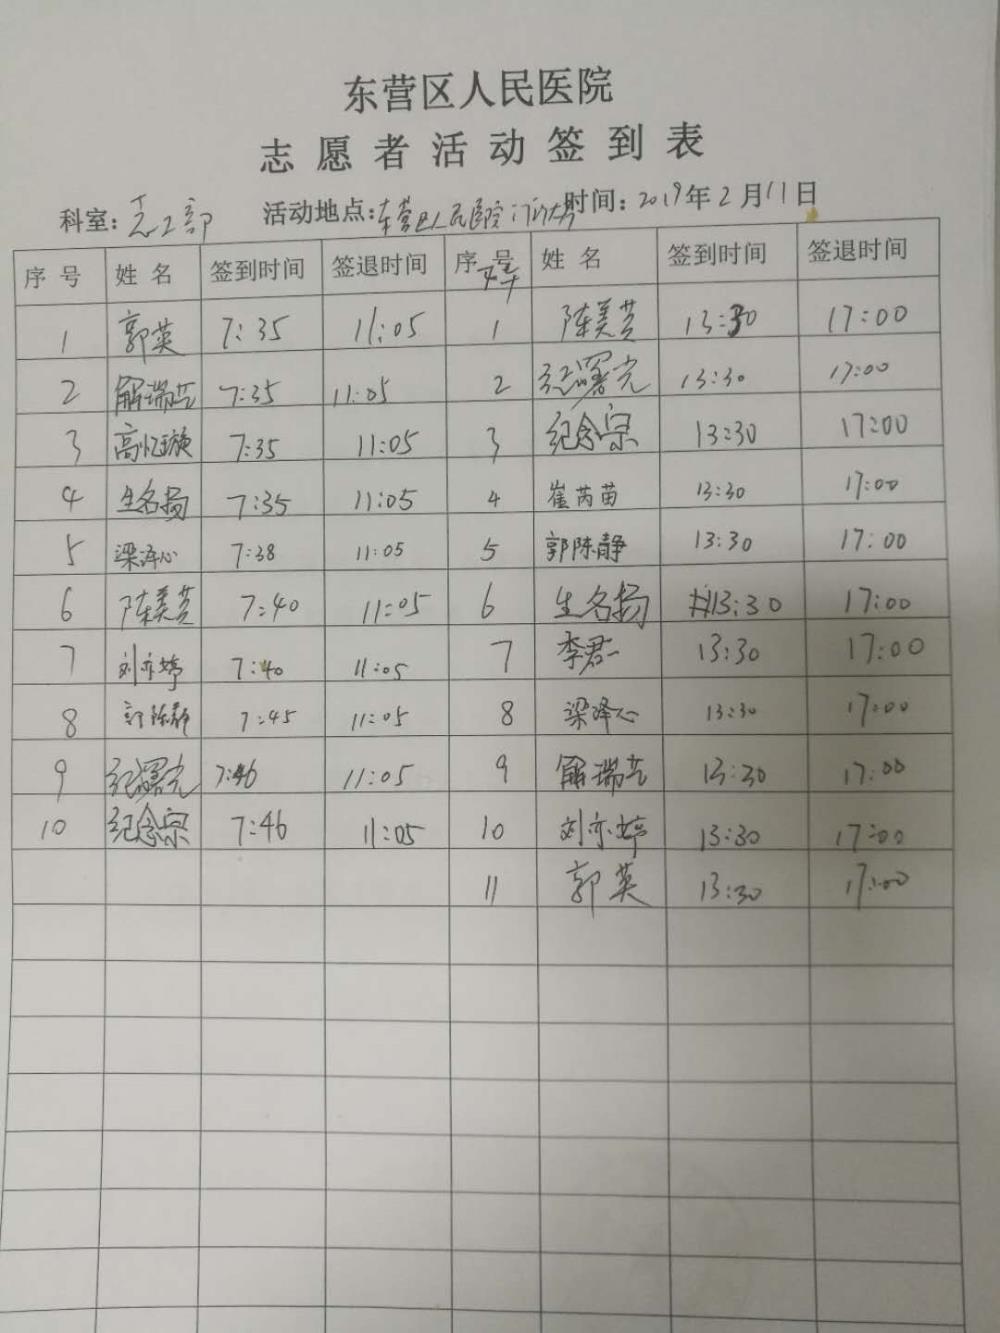 东营区人民医院
志愿者活动签到表
科室：志工部 活动地点：东营区人民医院门诊大厅 时间：2019年2月11日
序号 姓名 签到时间 签退时间 序号 姓名 签到时间 签退时间
下午
1 郭英 7:35 11:05 1 陈美芸 13:30 17:00
2 解瑞芸 7:35 11:05 2 纪曙光 13:30 17:00
3 高忆璇 7:35 11:05 3 纪念宗 13:30 17:00
4 生名扬 7:35 11:05 4 崔芮苗 13:30 17:00
5 梁泽心 7:38 11:05 5 郭陈静 13:30 17:00
6 陈美芸 7:40 11:05 6 生名扬 13:30 17:00
7 刘亦婷 7:40 11:05 7 李君一 13:30 17:00
8 郭陈静 7:45 11:05 8 梁泽心 13:30 17:00
9 纪曙光 7:46 11:05 9 解瑞芸 13:30 17:00
10 纪念宗 7:46 11:05 10 刘亦婷 13:30 17:00
11 郭英 13:30 17:00